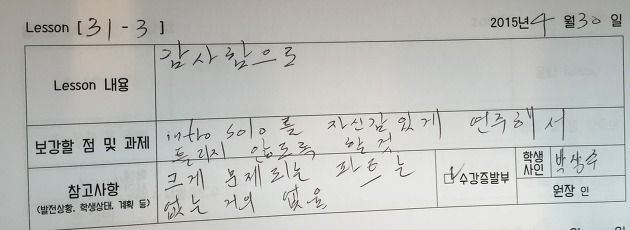 Lesson [ 31 - 3 ] 2015년 4 월 30 일
Lesson 내용 감사함으로
보강할 점 및 과제 intro solo를 자신감있게 연주해서
틀리지 않도록 할 것
참고사항 크게 문제되는 파트는
(발전상황, 학생상태, 계획 등) 없는 거의 없음
☑수강증발부 학생 사인 박상수
원장 인